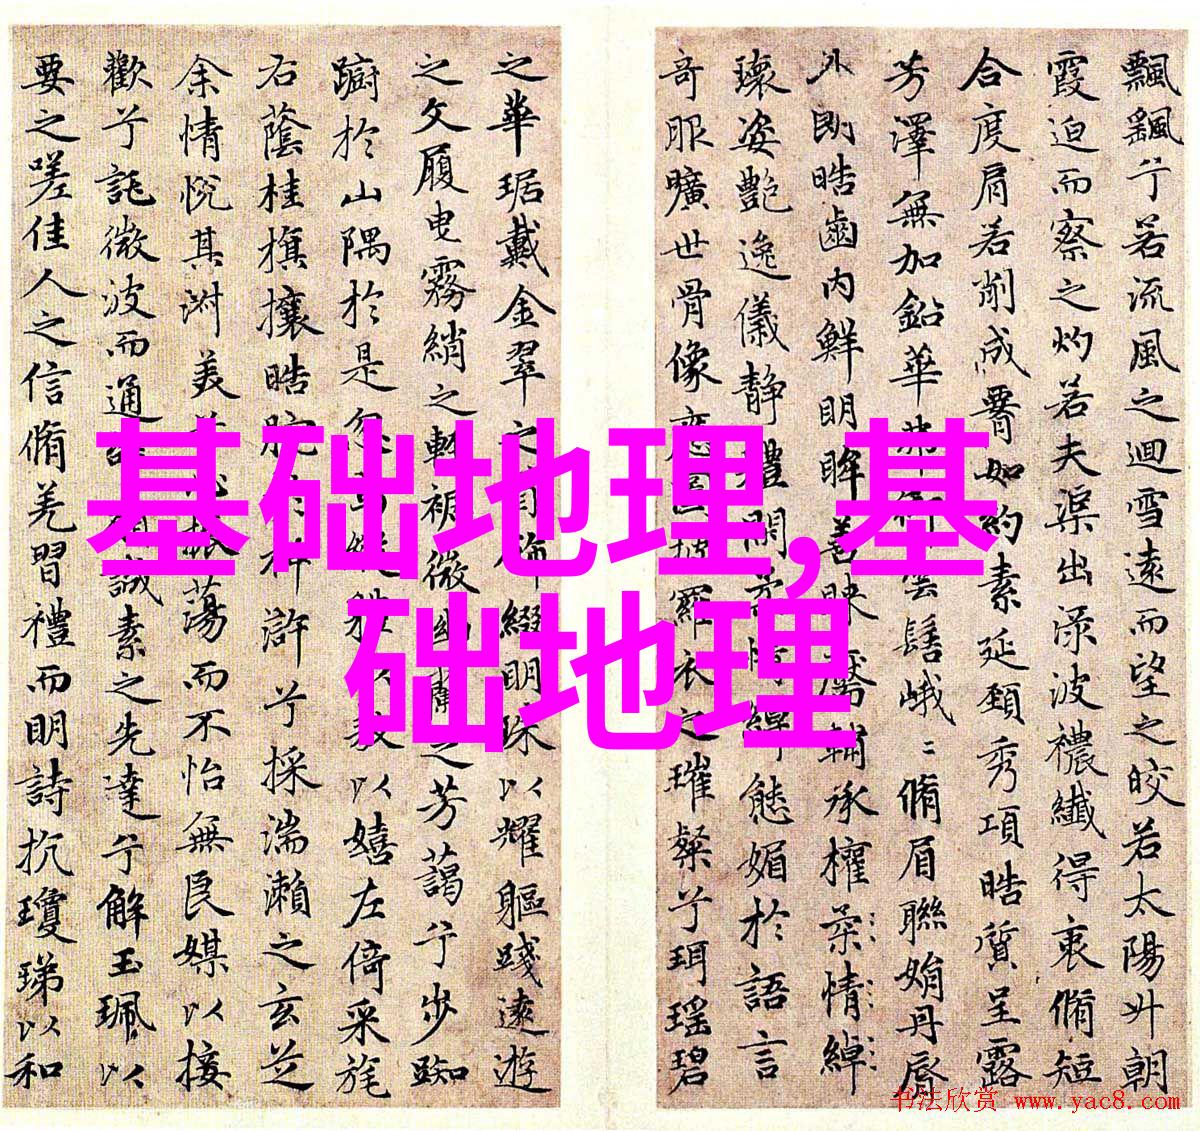 飄颻兮若流風之迴雪遠而望之皎若太陽升朝
霞迫而察之灼若夫渠出渌波襛纖得衷脩短
合度肩若削成𦝫如約素延頸秀項皓質呈露
芳澤無加鉛華弗御雲髻峨〻脩眉聯娟丹脣
外朗皓齒內鮮明眸善睞靨輔承權柔情綽
瓌姿艷逸儀靜體閑綽態媚於語言
奇服曠世骨像應羅衣之璀粲兮珥瑤碧
之華琚戴金翠之首飾綴明珠以耀軀踐遠遊
之文履曳霧綃之輕裾微幽蘭之芳藹兮步踟
躕於山隅於是忽焉縱體以遨以嬉左倚采旄
右蔭桂旗攘皓腕於神滸兮採湍瀨之玄芝
余情悅其淑美兮心振蕩而不怡無良媒以接
歡兮託微波而通辭誠素之先達兮解玉珮以
要之嗟佳人之信脩羌習禮而明詩抗瓊珶以和
基础地理,基
础地理
书法欣赏 www.yac8.com